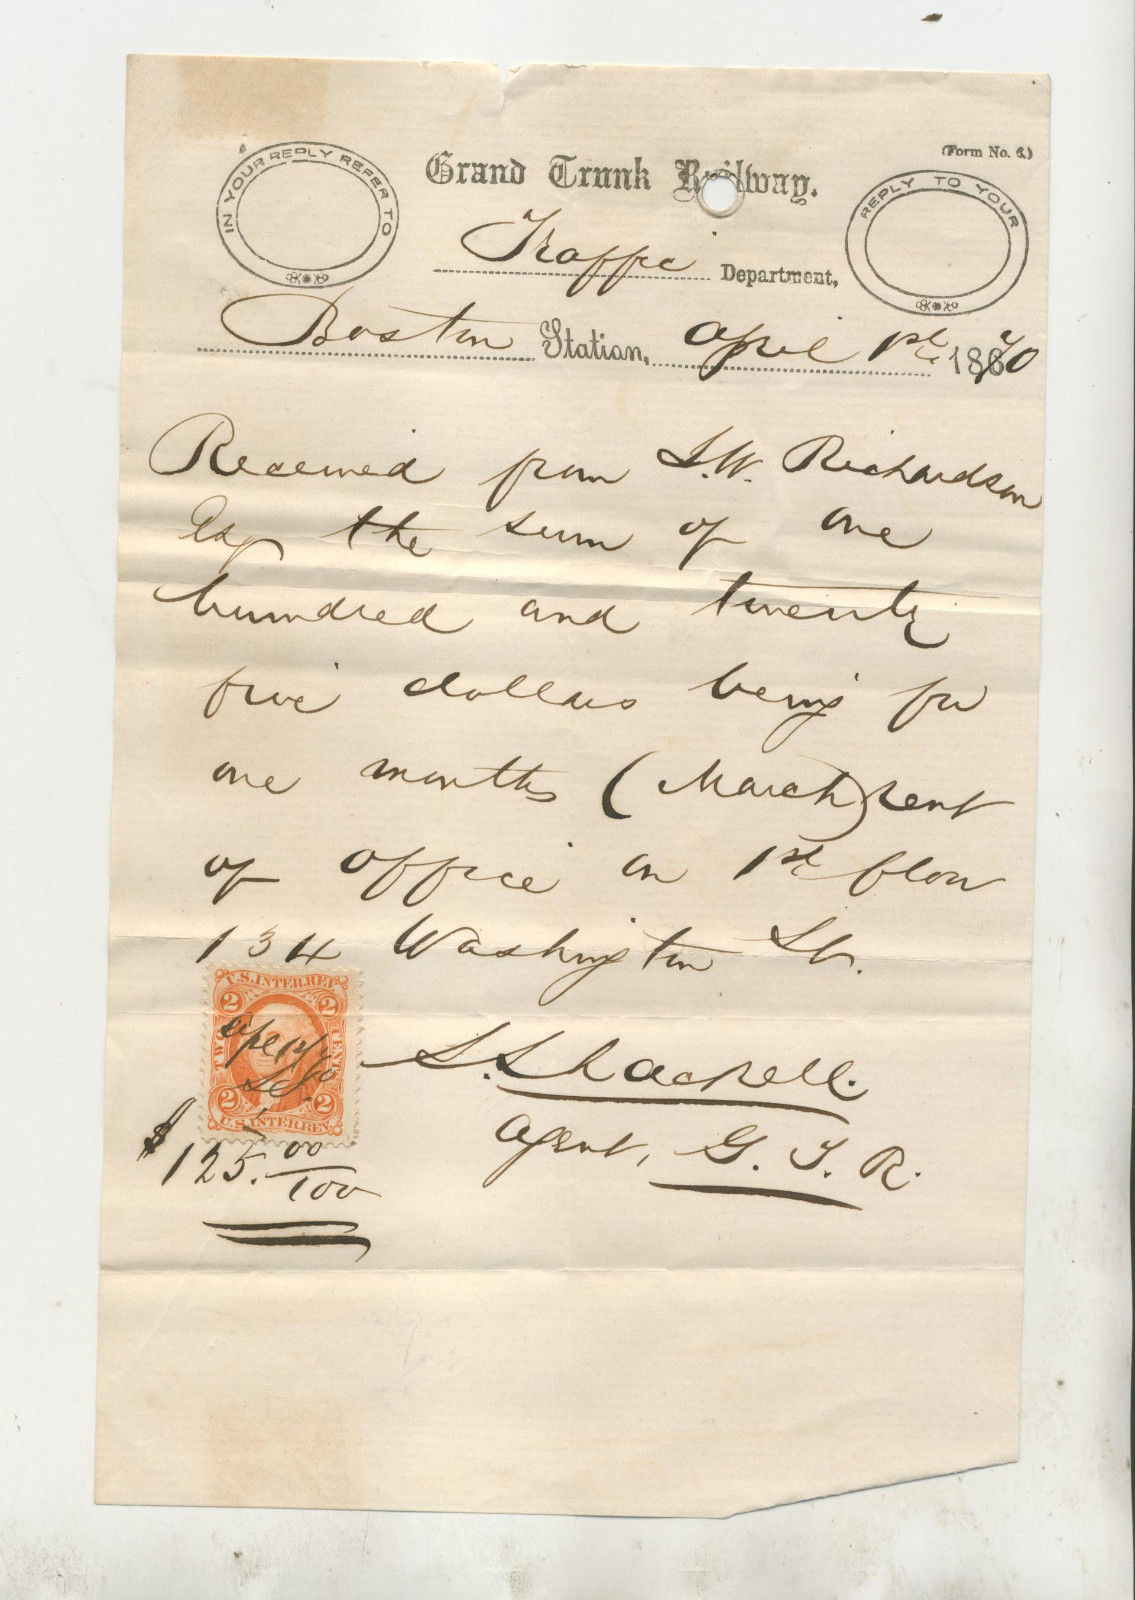 (Form No. 6.)
IN YOUR REPLY REFER TO
Grand Trunk Railway.
REPLY TO YOUR
Traffic Department,
Boston Station, April 1st 1870
Received from S.W. Richardson
Esq the sum of one
hundred and twenty
five dollars being for
one months (March) rent
of office on 1st floor
134 Washington St.
U.S. INTER. REV.
2 2
TWO CENTS
Apl 1st/70
2 2
U.S. INTER. REV.
S. Shackell.
Agent, G. T. R.
$125.00/100